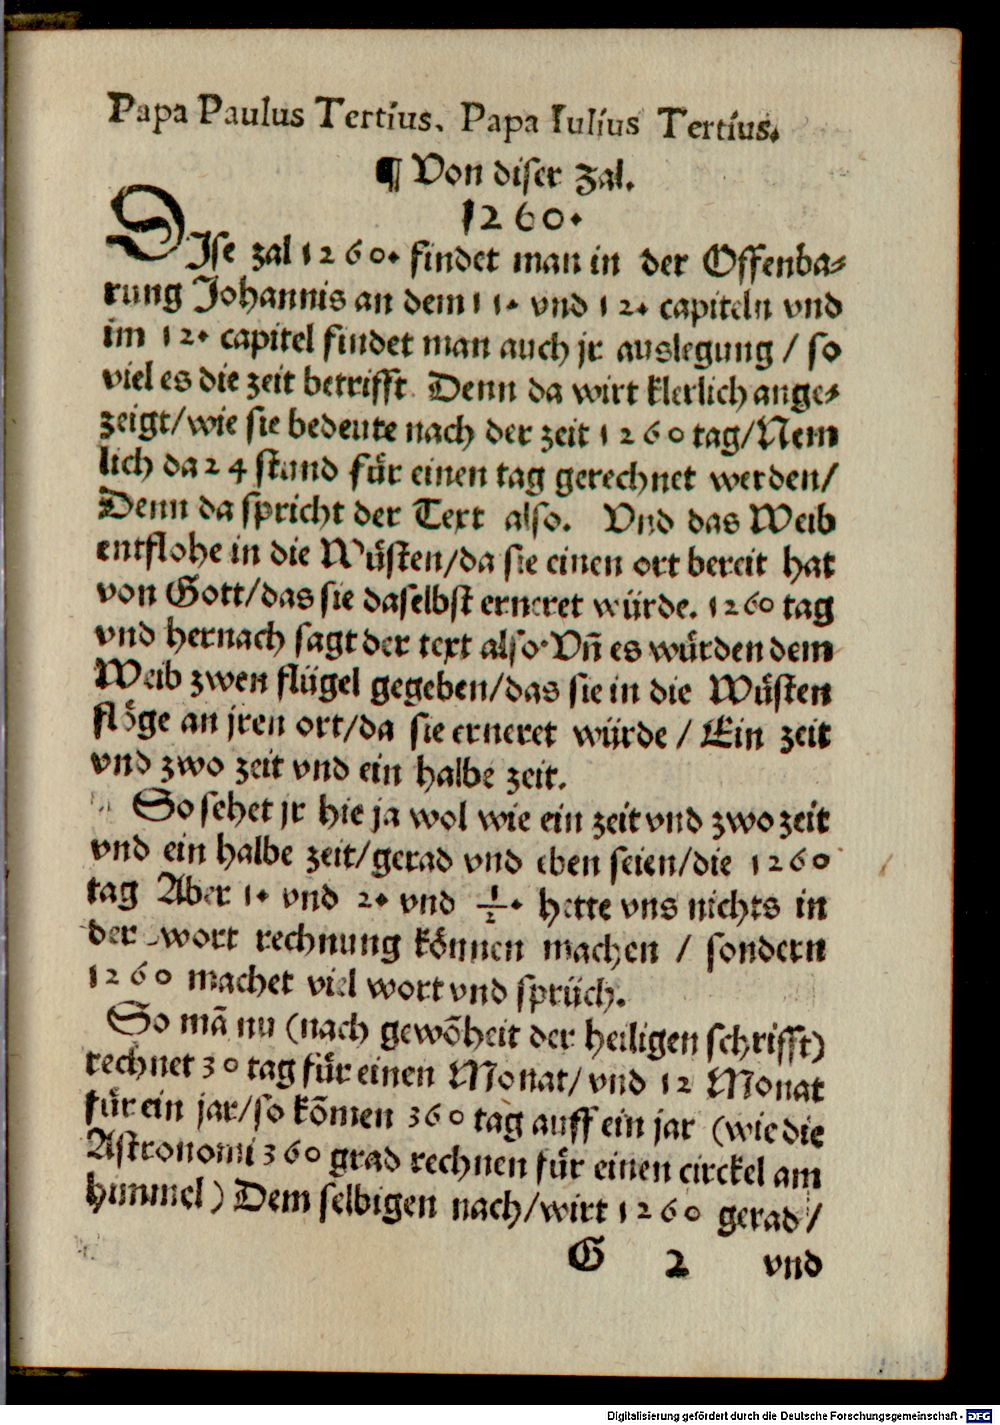 Papa Paulus Tertius. Papa Iulius Tertius.
¶ Von diser Zal.
1260.
DIse zal 1260. findet man in der Offenba⸗
rung Johannis an dem 11. vnd 12. capiteln vnd
im 12. capitel findet man auch jr auslegung / so
viel es die zeit betrifft. Denn da wirt klerlich ange⸗
zeigt/wie sie bedeute nach der zeit 1260 tag/Nem
lich da 24 stund für einen tag gerechnet werden/
Denn da spricht der Text also. Vnd das Weib
entflohe in die Wüsten/da sie einen ort bereit hat
von Gott/das sie daselbst erneret würde. 1260 tag
vnd hernach sagt der text also·Vñ es würden dem
Weib zwen flügel gegeben/das sie in die Wüsten
flöge an jren ort/da sie erneret würde / Ein zeit
vnd zwo zeit vnd ein halbe zeit.
So sehet jr hie ja wol wie ein zeit vnd zwo zeit
vnd ein halbe zeit/gerad vnd eben seien/die 1260
tag Aber 1. vnd 2. vnd 1/2. hette vns nichts in
der wort rechnung können machen / sondern
1260 machet viel wort vnd sprüch.
So mã nu (nach gewõheit der heiligen schrifft)
rechnet 30 tag für einen Monat/ vnd 12 Monat
für ein jar/so kõmen 360 tag auff ein jar (wie die
Astronomi 360 grad rechnen für einen circkel am
himmel) Dem selbigen nach/wirt 1260 gerad/
G 2 vnd
Digitalisierung gefördert durch die Deutsche Forschungsgemeinschaft - DFG